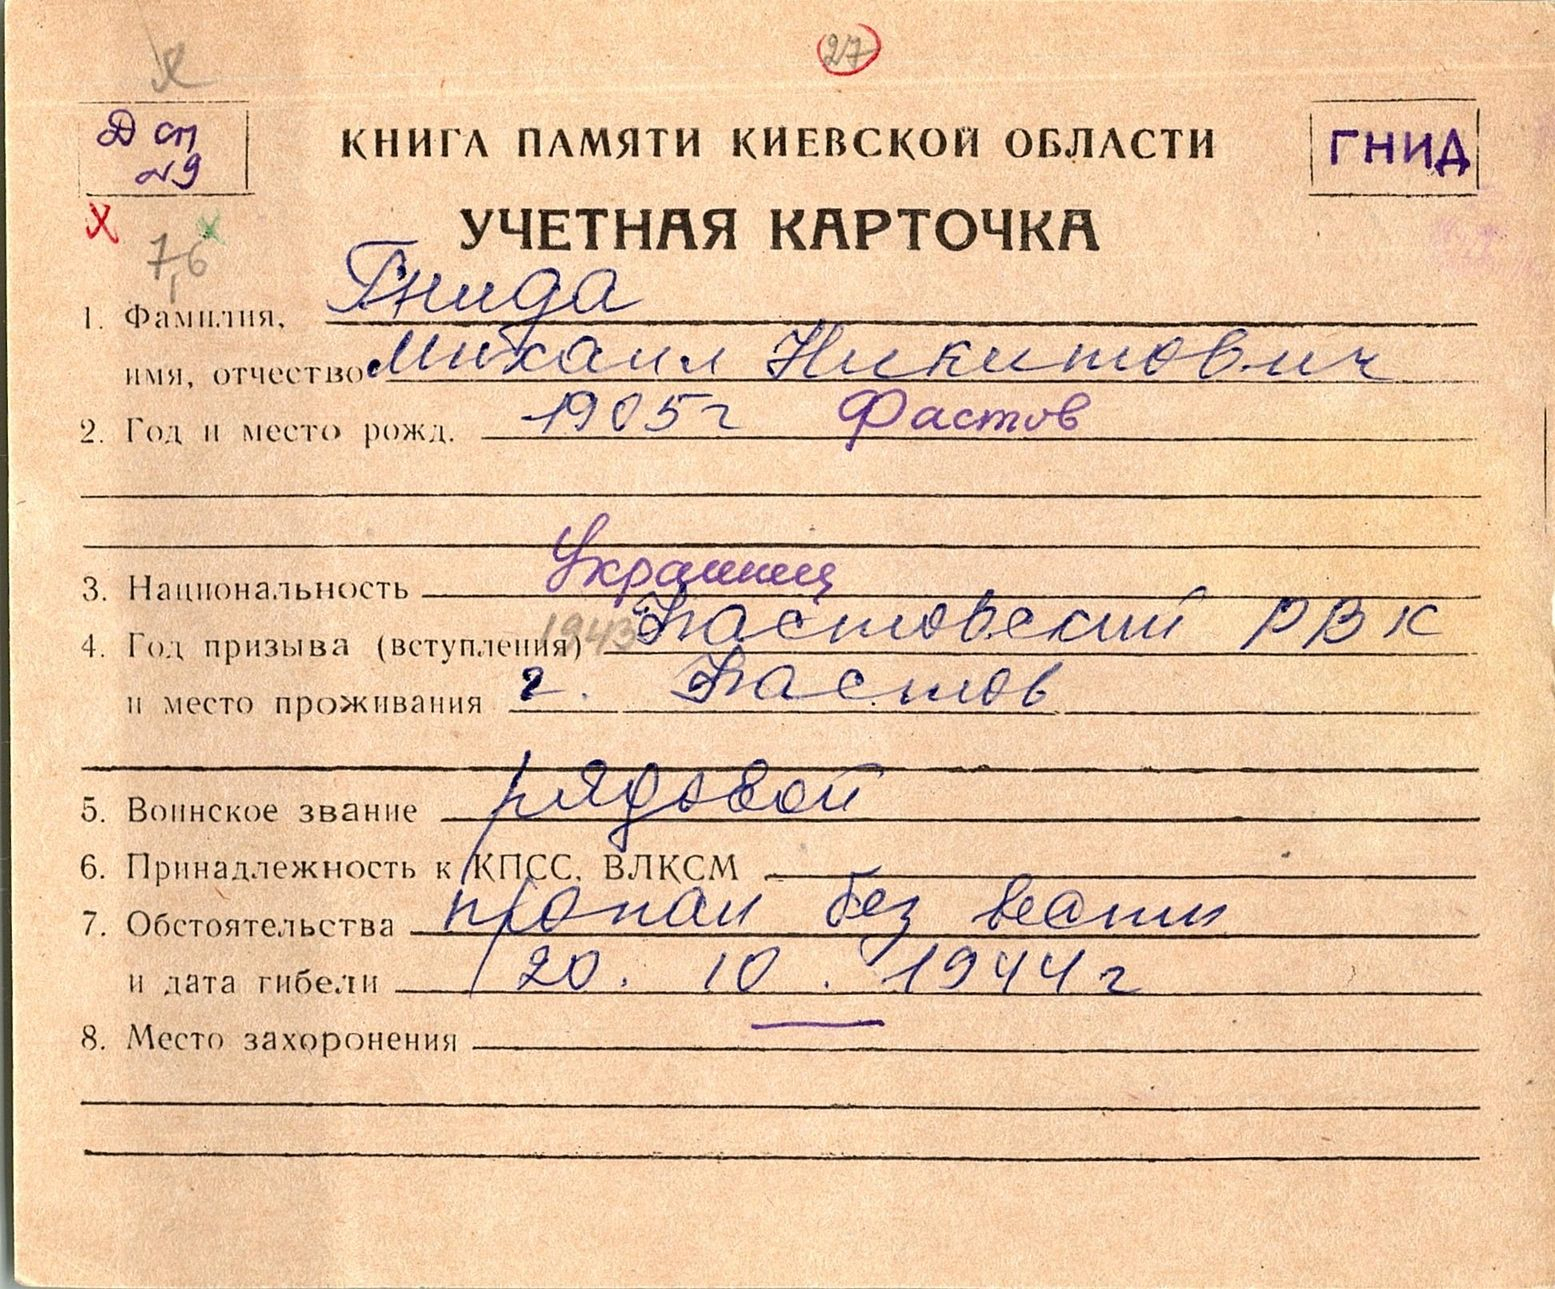 27
Д сп
КНИГА ПАМЯТИ КИЕВСКОЙ ОБЛАСТИ
ГНИД
№9
УЧЕТНАЯ КАРТОЧКА
7,6
1. Фамилия, Гнида
имя, отчество Михаил Никитович
2. Год и место рожд. 1905г Фастов
3. Национальность Украинец
4. Год призыва (вступления) 1943 Фастовский РВК
и место проживания г. Фастов
5. Воинское звание рядовой
6. Принадлежность к КПСС, ВЛКСМ
7. Обстоятельства пропал без вести
и дата гибели 20. 10. 1944г
8. Место захоронения